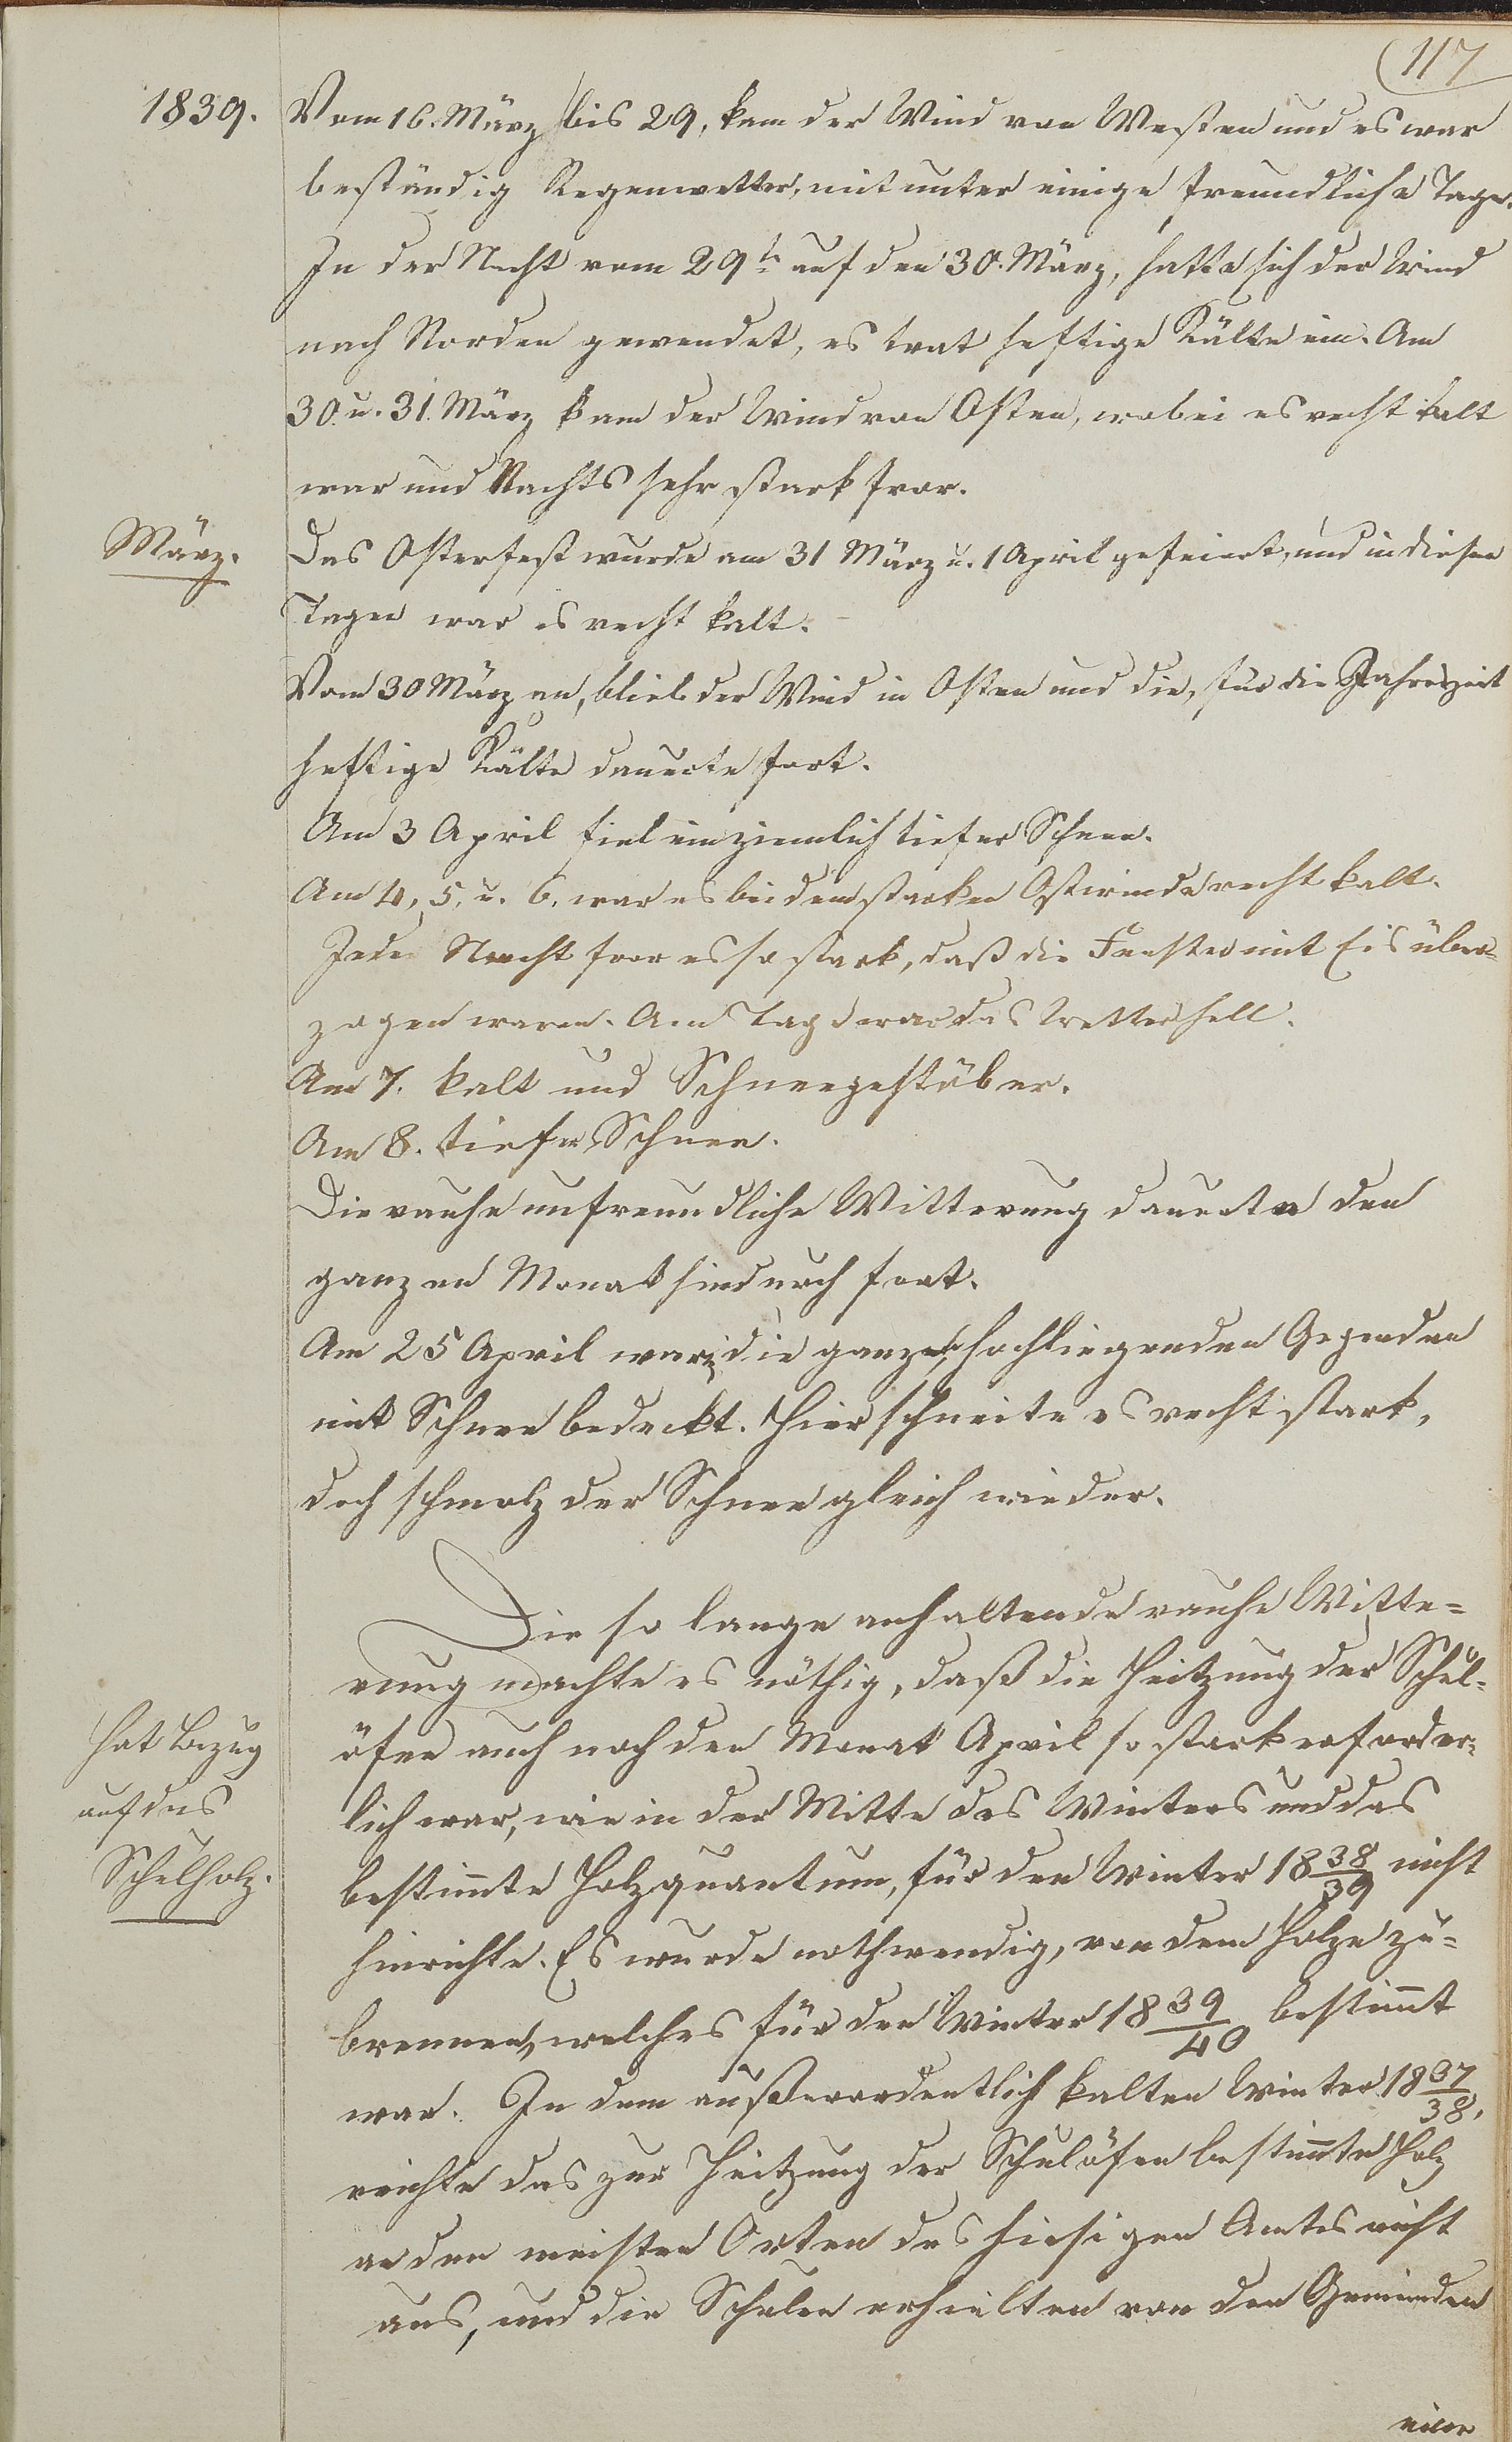 117
1839.
Vom 16. März bis 29, kam der Wind von Westen und es war
beständig Regenwetter, mitunter einige freundliche Tage.
In der Nacht vom 29t auf den 30. März, hatte sich der Wind
nach Norden gewendet, es trat heftige Kälte ein. Am
30. u. 31. März kam der Wind von Osten, wobei es recht kalt
war und Nachts sehr stark fror.
März.
Das Osterfest wurde am 31 März u. 1 April gefeiert, und in diesen
Tagen war es recht kalt.
Vom 30 März an, blieb der Wind in Osten und die, für die Jahreszeit
heftige Kälte dauerte fort.
Am 3 April fiel ein ziemlich tiefer Schnee.
Am 4, 5, u. 6. war es bei dem starken Ostwinde recht kalt.
Jede Nacht fror es so stark, daß die Fenster mit Eis über-
zogen waren. Am Tag war das Wetter hell.
Am 7. kalt und Schneegestöber.
Am 8. tiefer Schnee.
Die rauhe unfreundliche Witterung dauerte den
ganzen Monat hindurch fort.
Am 25 April war die ganzen hochliegenden Gegenden
mit Schnee bedeckt. Hier schneite es recht stark,
doch schmolz der Schnee gleich wieder.
Die so lange anhaltende rauhe Witte=
rung machte es nöthig, daß die Heitzung der Schul-
öfen auch noch den Monat April so stark erforder-
lich war, wie in der Mitte des Winters und das
bestimte Holzquantum, für den Winter 1838/39 nicht
hinreichte. Es wurde nothwendig, von dem Holze zu=
brennen, welches für den Winter 1839/40 bestimt
war. In dem außerordentlich kalten Winter 1837/38,
reichte das zur Heitzung der Schulöfen bestimte Holz
an den meisten Orten des hiesigen Amtes nicht
aus, und die Schulen erhielten von den Gemeinden
hat Bezug
auf das
Schulholz.